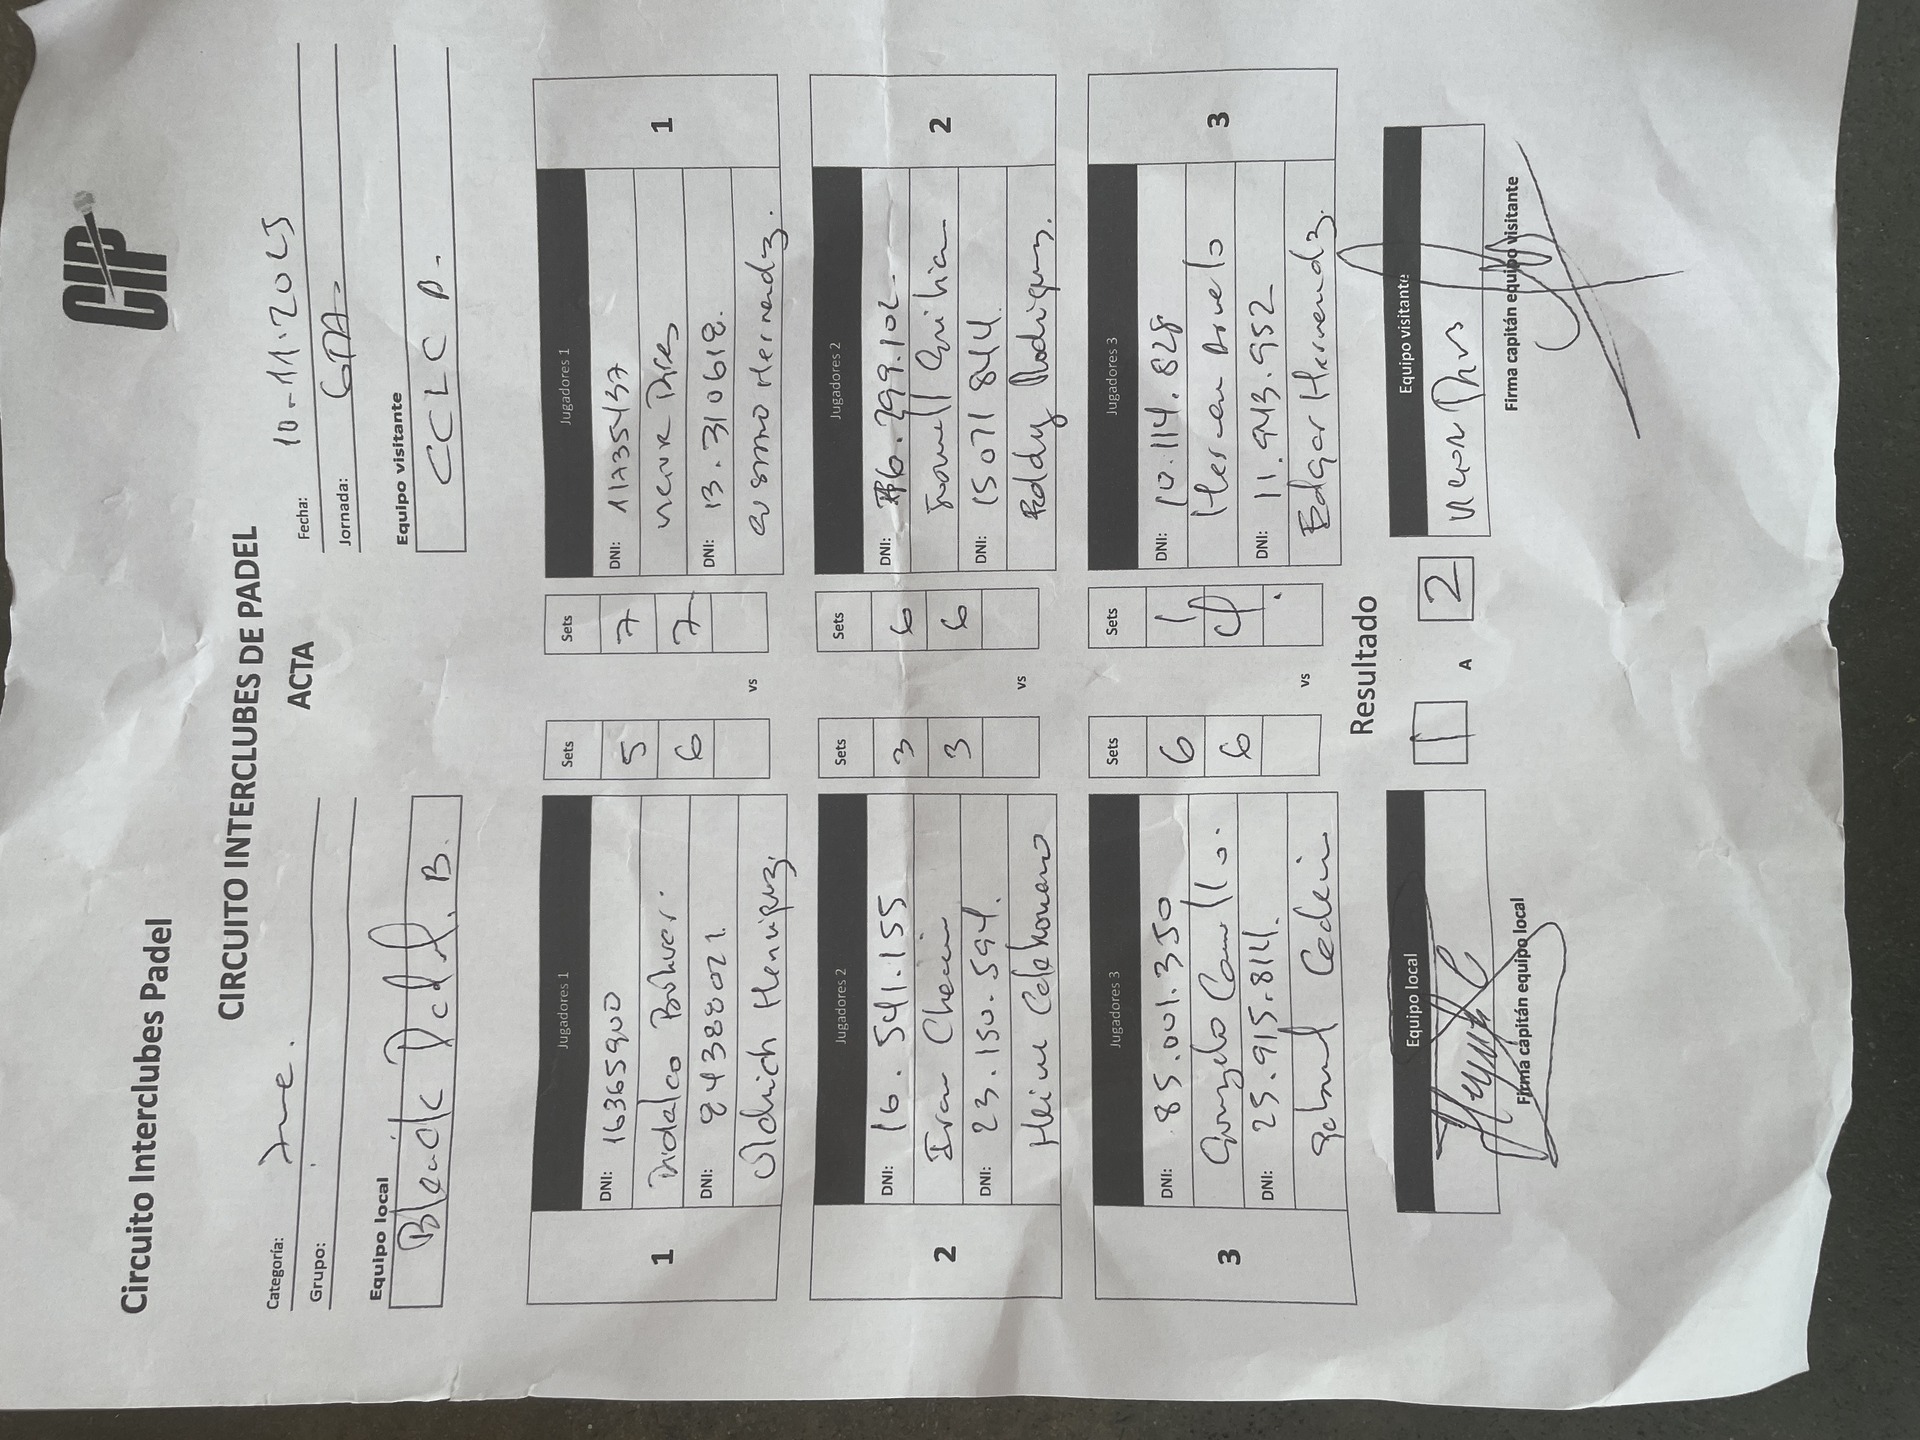 Circuito Interclubes Padel
CIP
CIRCUITO INTERCLUBES DE PADEL
ACTA
Categoría:
Fecha: 10-11-2025
Grupo:
Jornada: 6TA.
Equipo local
Equipo visitante
Black Padel. B.
CCLC
Jugadores 1
Sets
Sets
Jugadores 1
1
DNI: 16365900
5
7
DNI: 11735437
1
6
7
DNI: 84388021.
DNI: 13.310618.
Oldrich Henriquez,
vs
Cosimo Hernandz.
Jugadores 2
Sets
Sets
Jugadores 2
2
DNI: 16.541.155
3
6
DNI: 6.299.102
2
Ivan
3
6
DNI: 23.150.594.
DNI: 15071844.
vs
Freddy Rodriguez.
Jugadores 3
Sets
Sets
Jugadores 3
3
DNI: 85.001.350
6
1
DNI: 10.114.828
3
Gonzalo
6
4
Hernan
DNI: 25.915.814.
DNI: 11.943.952
Cedeño
vs
Edgar Hernandz.
Resultado
Equipo local
1 A 2
Equipo visitante
Firma capitán equipo local
Firma capitán equipo visitante